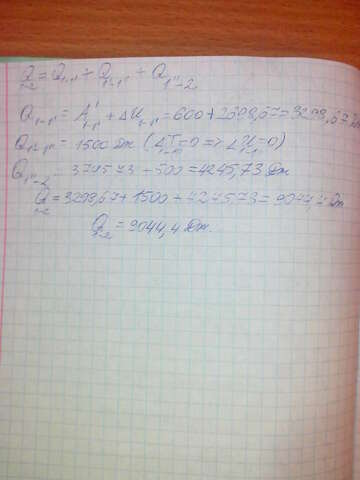 Q₁₋₂ = Q₁₋₁' + Q₁'₋₁'' + Q₁''₋₂
Q₁₋₁' = A'₁₋₁' + ΔU₁₋₁' = 600 + 2698,67 = 3298,67 Дж
Q₁'₋₁'' = 1500 Дж (ΔT₁'₋₁''=0 => ΔU₁'₋₁''=0)
Q₁''₋₂ = 3745,73 + 500 = 4245,73 Дж
Q₁₋₂ = 3298,67 + 1500 + 4245,73 = 9044,4 Дж
Q₁₋₂ = 9044,4 Дж.